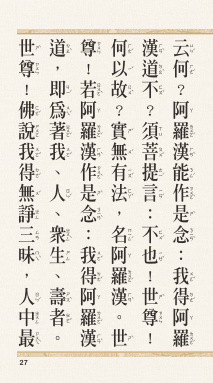 云何？阿羅漢能作是念：我得阿羅
漢道不？須菩提言：不也！世尊！
何以故？實無有法，名阿羅漢。世
尊！若阿羅漢作是念：我得阿羅漢
道，即為著我、人、眾生、壽者。
世尊！佛說我得無諍三昧，人中最
27